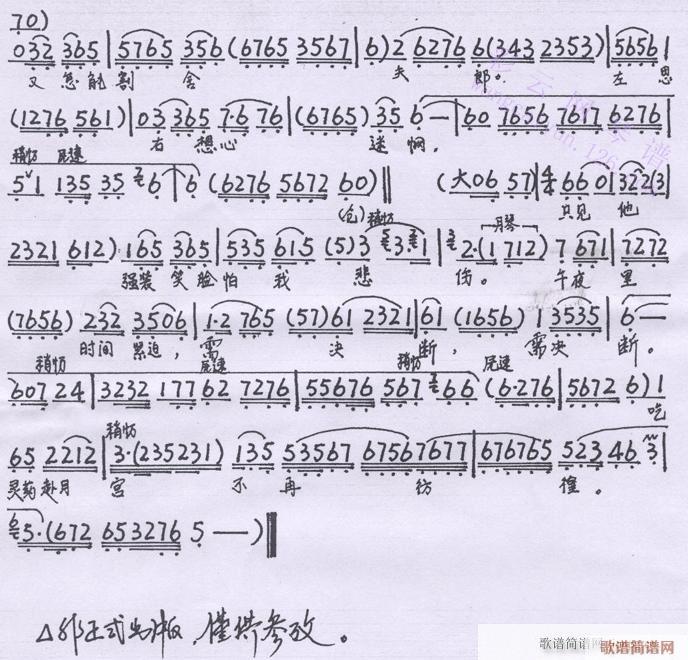 70)
032 365 | 5765 356 (6765 3567 | 6) 2 6276 6 (343 2353) | 5656 1
又 怎能 割 舍 夫 郎。 左 思
(1276 561) | 03 365 7·6 76 | (6765) 35 6 — | 60 7656 7617 6276 |
右 想 心 迷 惘,
稍快 原速
5ˇ1 135 35 6 6 (6276 5672 60) || (大06 57) 660 1322(3 |
(仓) 稍快 只见 他
2321 612) 165 365 | 535 615 (5) 3 3·1 | 2·(1 712) 7 671 | 7272
月琴
强装 笑脸 怕 我 悲 伤。 午夜 里
(7656) 232 3506 | 1·2 765 (57) 61 2321 | 61 (1656) 1 3535 | 6 —
时间 紧迫, 需 决 断, 需决 断。
稍快 原速 稍快 原速
607 24 | 3232 177 62 7276 | 55676 567 66 (6·276 | 5672 6) 1
吃
稍快
65 2212 | 3·(235231) 135 53567 67567677 | 676765 523 46 3 |
灵药 赴月 宫 不 再 彷 徨。
5·(672 653276 5 — )||
△非正式出版,仅供参考。
歌谱简谱网
歌谱简谱网